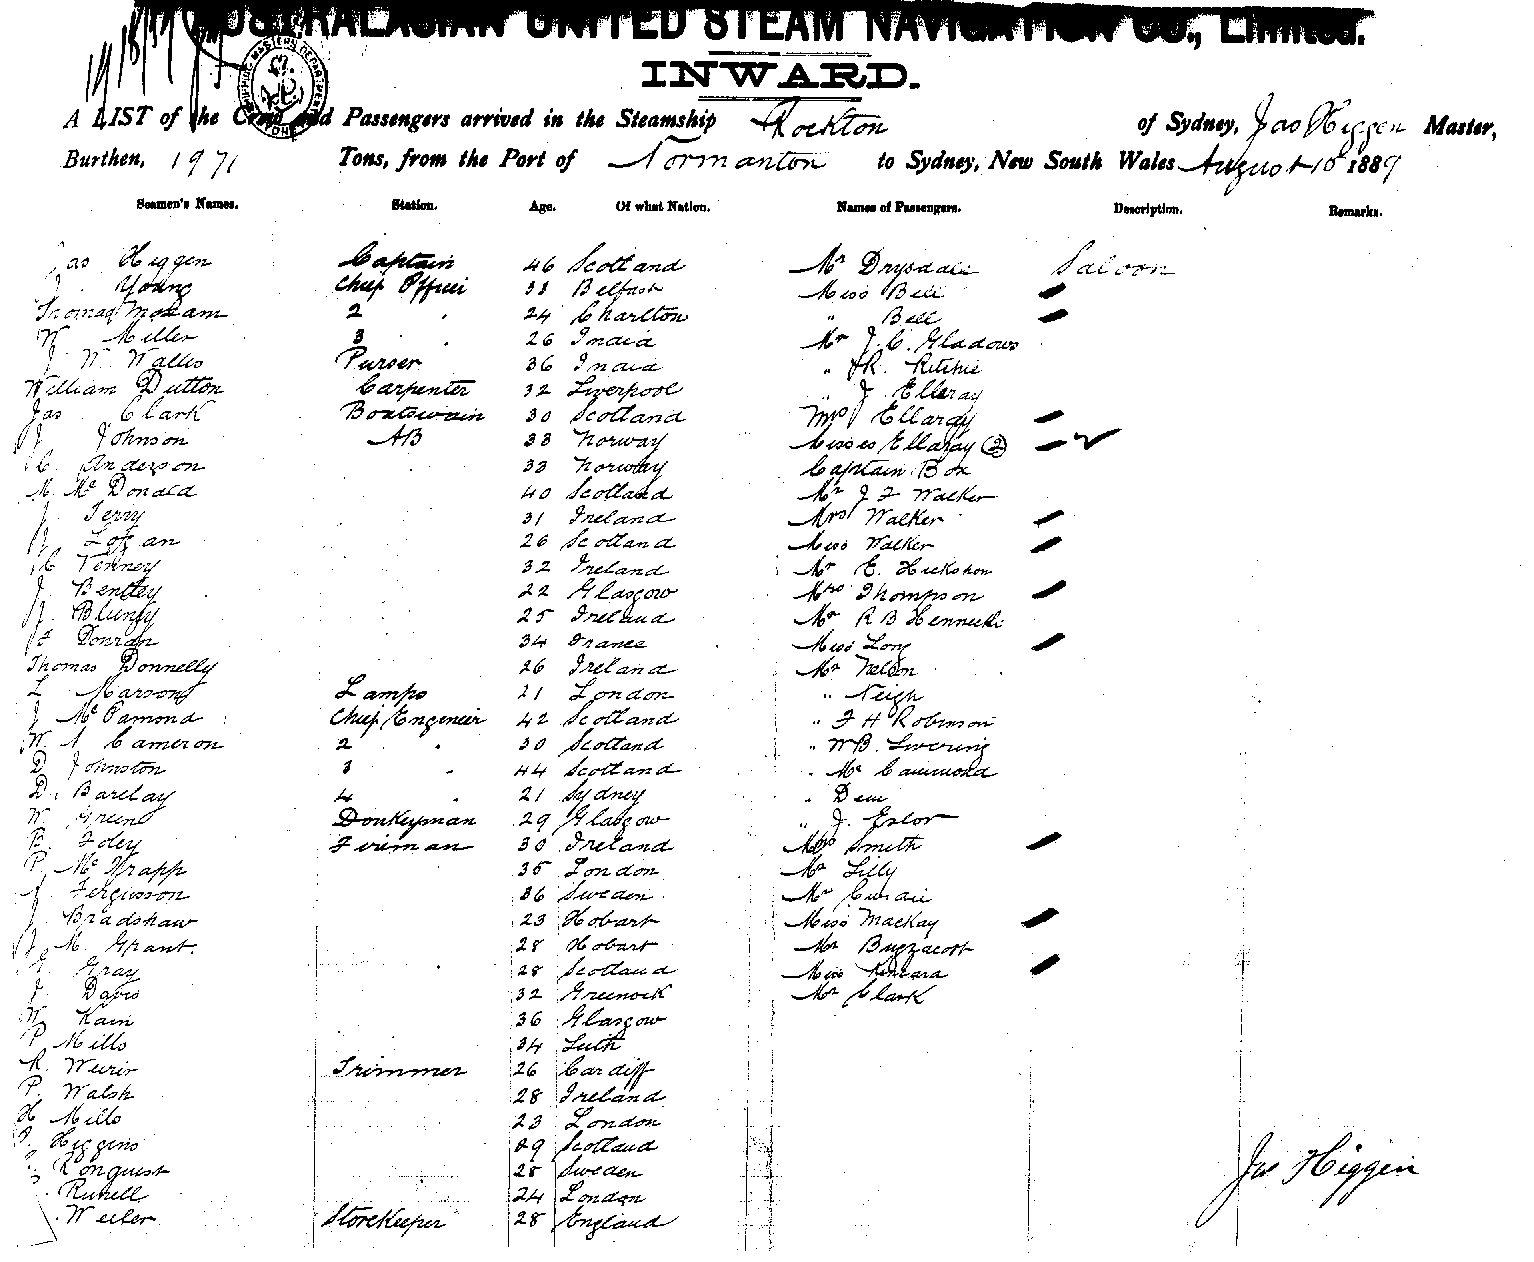 AUSTRALASIAN UNITED STEAM NAVIGATION CO., Limited.
INWARD.
A LIST of the Crew and Passengers arrived in the Steamship Rockton of Sydney, Jas Higgen Master,
Burthen, 1971 Tons, from the Port of Normanton to Sydney, New South Wales August 10 1889
Seamen's Names. Station. Age. Of what Nation. Names of Passengers. Description. Remarks.
Jas Higgen Captain 46 Scotland Mr Drysdale Saloon
Young Chief Officer 33 Belfast Miss Bell
Thomas 2 " 24 Charlton " Bell
W Miller 3 " 26 India Mr J. C. Gladows
J W Wallis Purser 36 India " R. Ritchie
William Dutton Carpenter 32 Liverpool " J Elleray
Jas Clark Boatswain 30 Scotland Mrs Elleray
J Johnson AB 33 Norway Misses Elleray (2)
C. Anderson 33 Norway Captain Box
M McDonald 40 Scotland Mr J F Walker
J Terry 31 Ireland Mrs Walker
Logan 26 Scotland Miss Walker
C Tenney 32 Ireland Mr E. Hickson
J. Bentley 22 Glasgow Mrs Thompson
J. 25 Ireland Mr R B
F 34 France Miss Long
Thomas Donnelly 26 Ireland Mr Nelson
L Lamps 21 London " Neigh
J Chief Engineir 42 Scotland " F H Robinson
W. A Cameron 2 " 30 Scotland " W B.
D Johnston 3 " 44 Scotland "
D. Barclay 4 " 21 Sydney "
W Green Donkeyman 29 Glasgow " J. Eslor
P. Foley Fireman 30 Ireland Mrs Smith
P McGrapp 35 London Mr Lilly
J Fergusson 36 Sweden Mr Currie
J Bradshaw 23 Hobart Miss Mackay
J M. Grant. 28 Hobart Mr Buzzacott
J Gray 28 Scotland Miss
J Davis 32 Greenock Mr Clark
W Kain 36 Glasgow
P Mills 34 Leith
R. Weir Trimmer 26 Cardiff
P. Walsh 28 Ireland
H Mills 23 London
Higgins 29 Scotland
Conquest 28 Sweden
24 London
Storekeeper 28 England
Jas Higgen